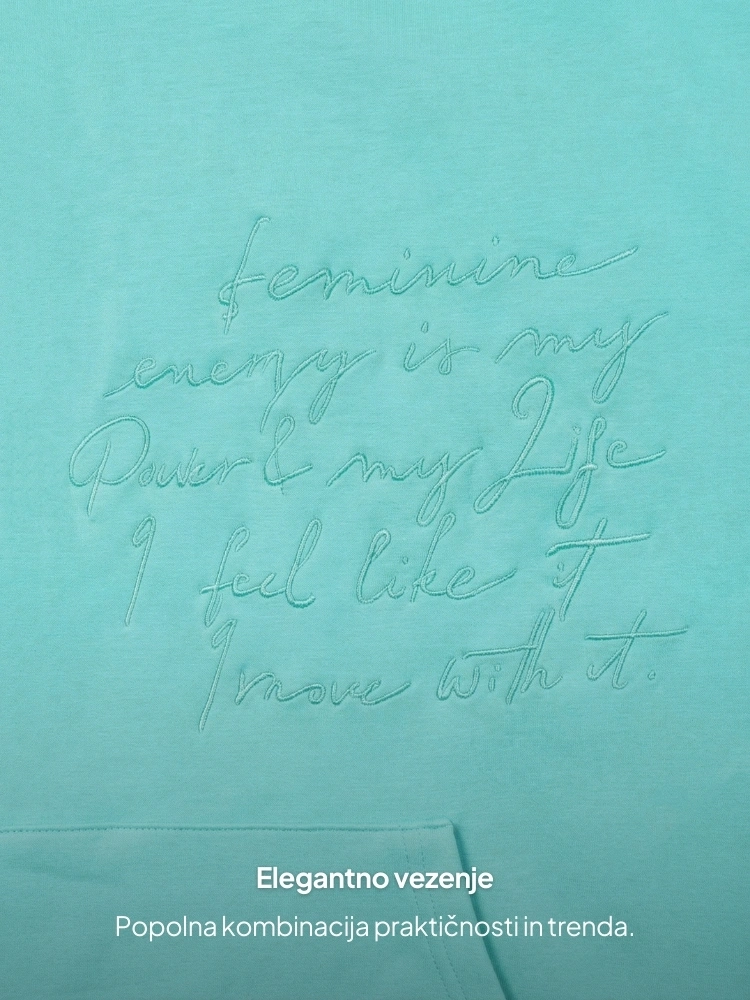 feminine
energy is my
Power & my Life
I feel like it
I move with it.
Elegantno vezenje
Popolna kombinacija praktičnosti in trenda.